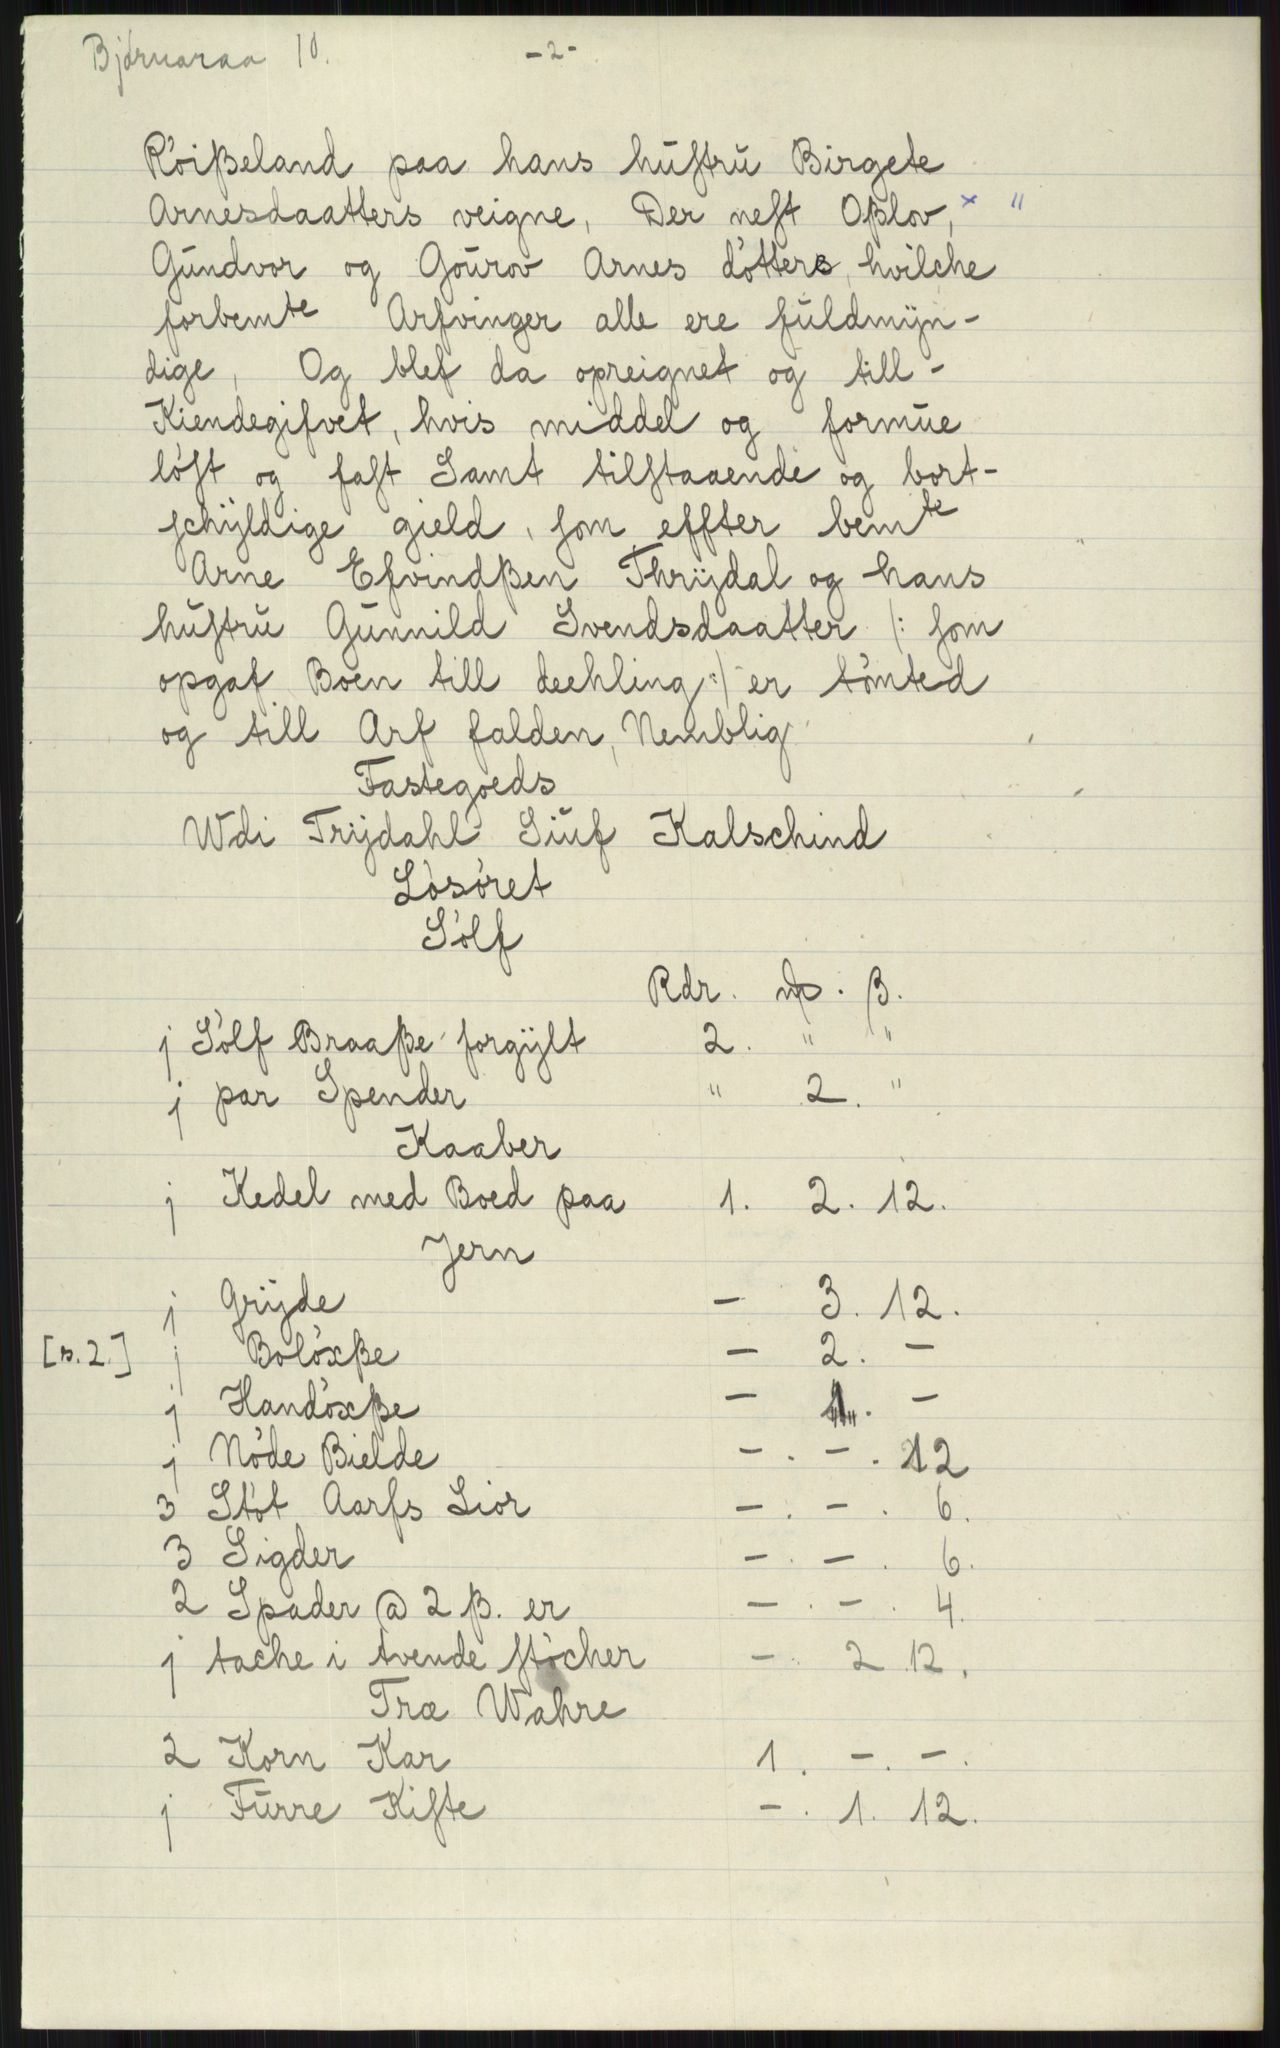 Bjørnaraa 10. -2-
Røißeland paa hans hustru Birgete
Arnesdaatters veigne, Der nest Oßlov, × "
Gundvor og Gourov Arnes døtters, hvilche
forbemte Arfvinger alle ere fuldmÿn-
dige, Og blef da opreignet og till-
Kiendegifvet, hvis middel og formue
løst og fast Samt tilstaaende og bort-
schÿldige gield, som effter bemte
Arne Efvindßen Thrÿdal og hans
hustru Gunnild Svendsdaatter /: som
opgaf Boen till deehling :/ er tømted
og till Arf falden, Nemblig
Fastegoeds
Wdi Trÿdahl Siuf Kalschind
Løsøret
Sølf
Rdr. mß. β.
j Sølf Braaße forgÿlt 2. " "
j par Spender " 2. "
Kaaber
j Kedel med Boed paa 1. 2. 12.
Jern
j Grÿde - 3. 12.
[s. 2.] j Boløxße - 2. -
j Handøxße - 1. -
j Nøde Bielde -. -. 12
3 Støt Aarfs Lior -. -. 6.
3 Sigder -. -. 6.
2 Spader @ 2 β. er -. -. 4.
j tache i tvende støcher -. 2 12.
Træ Wahre
2 Korn Kar 1. -. -.
j Furre Kiste -. 1. 12.